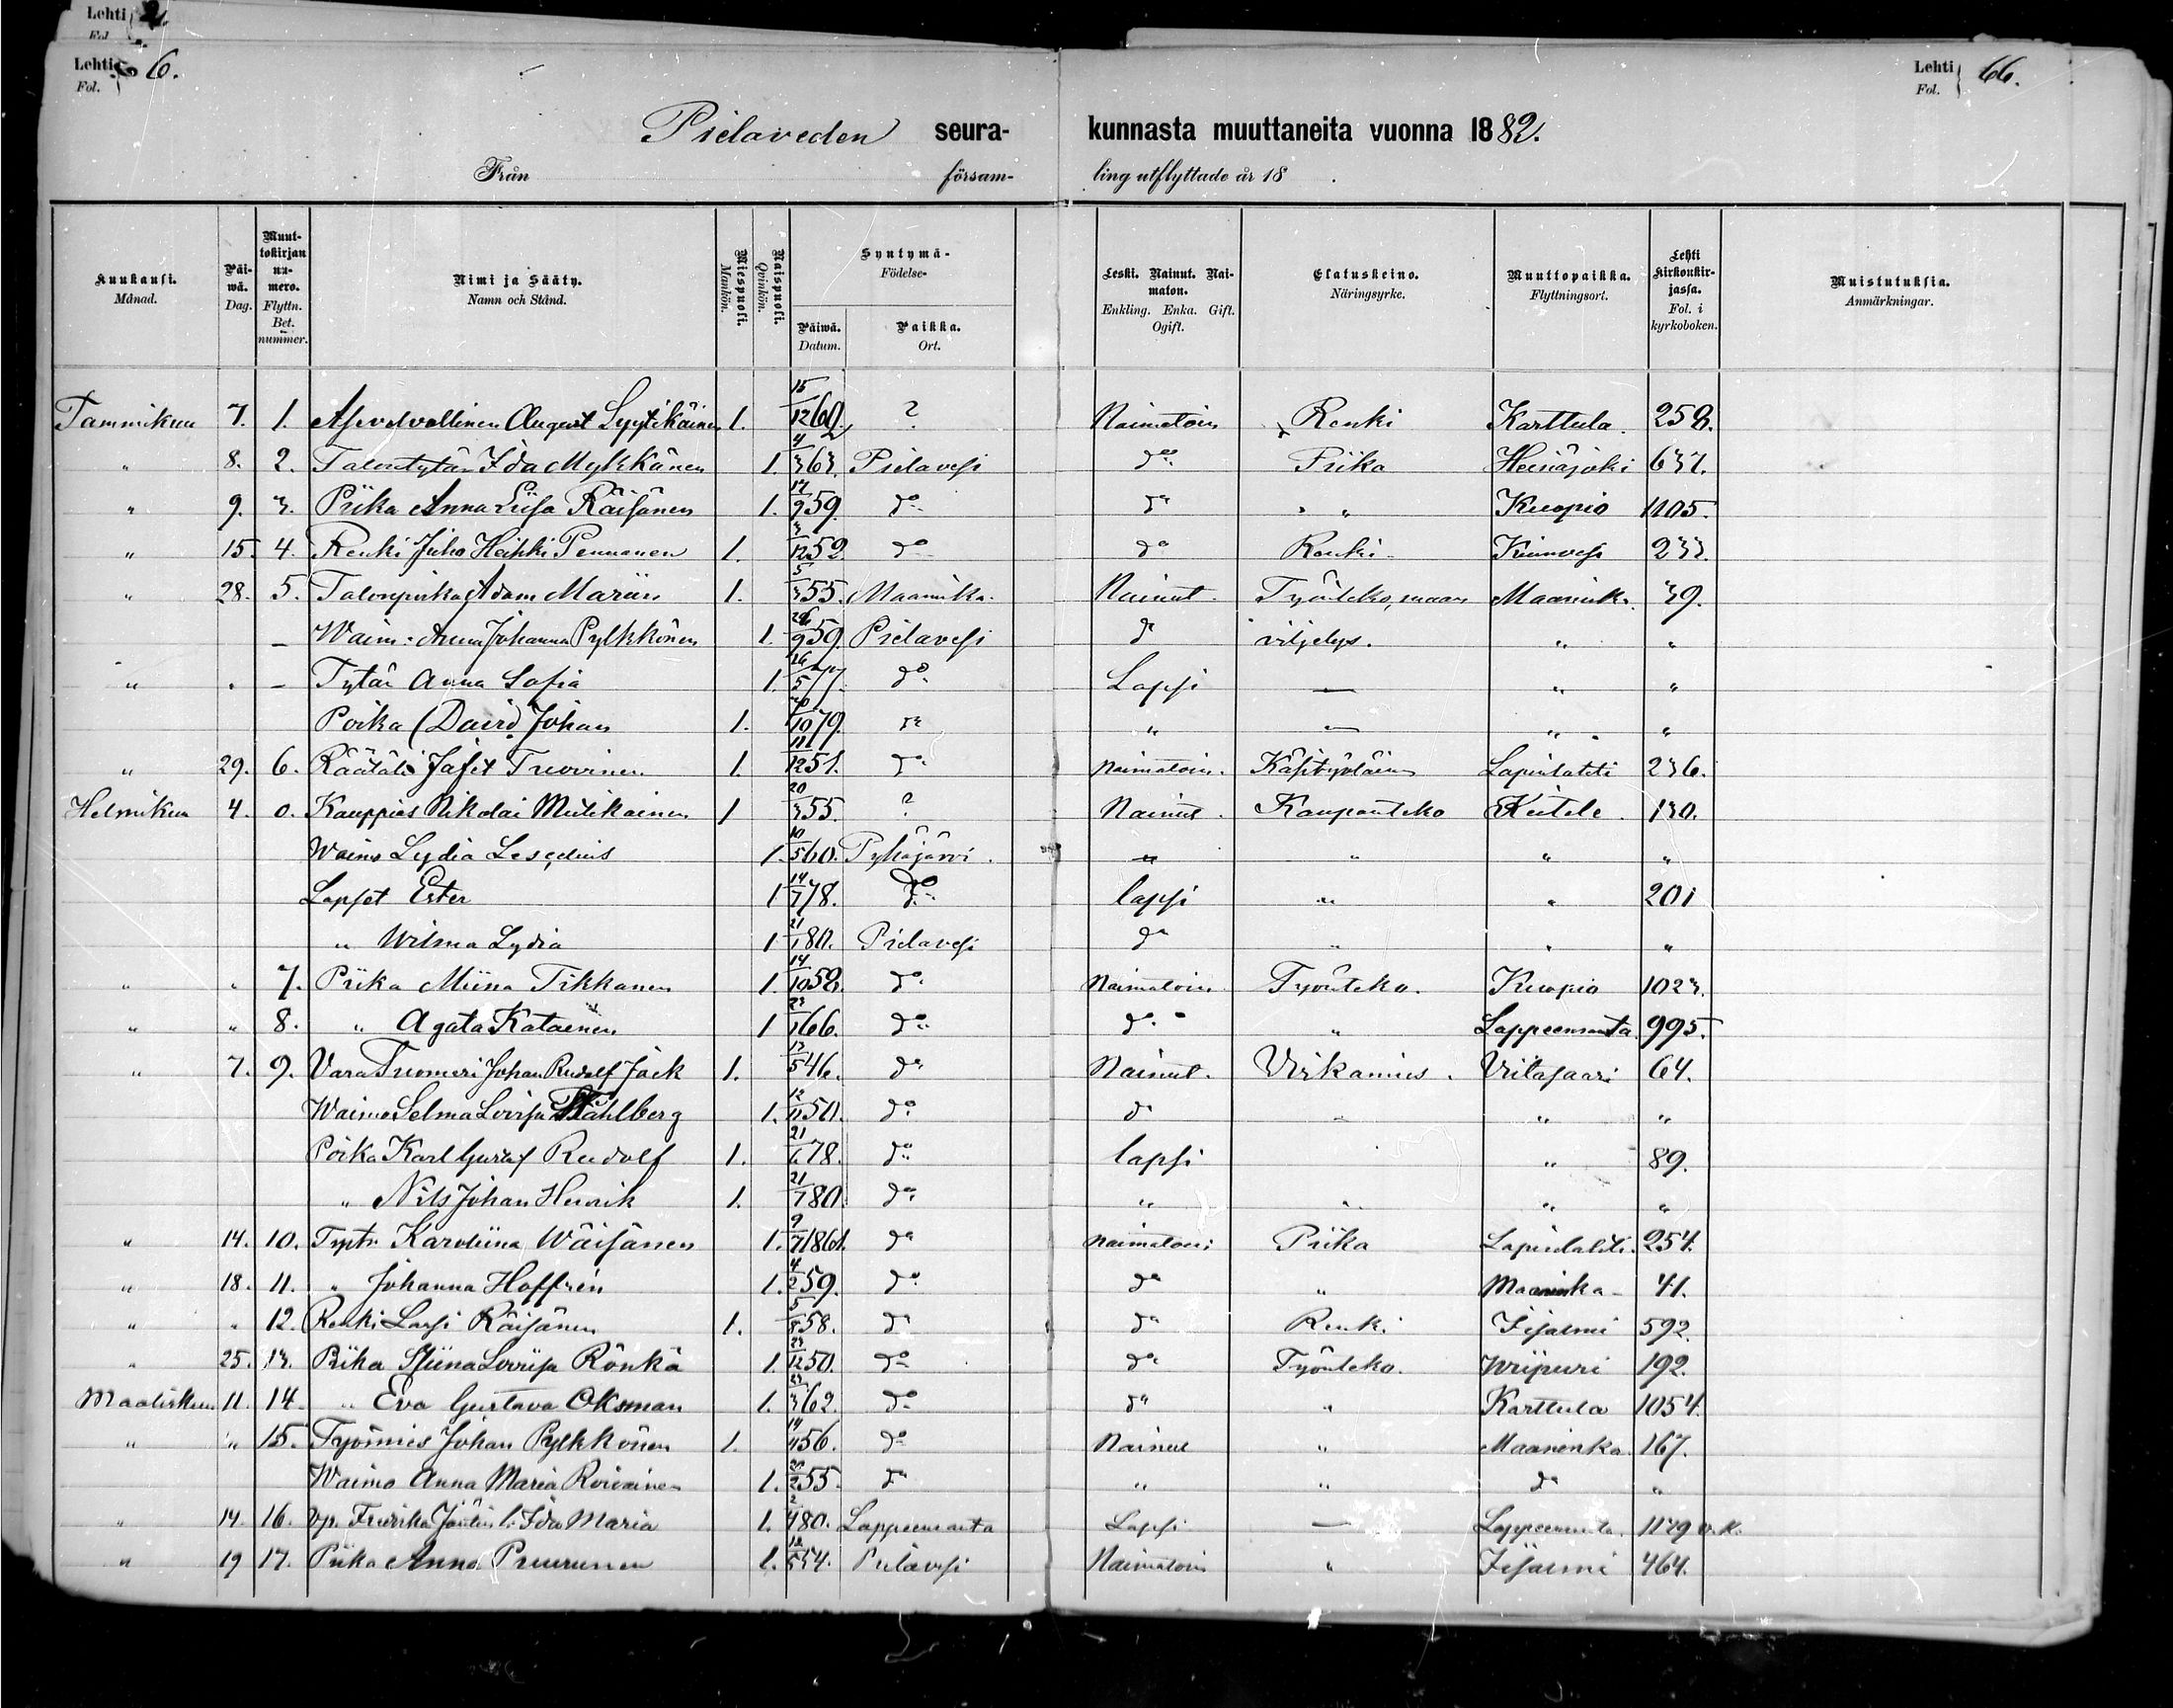 Lehti
Fol.
Lehti 6.
Fol.
Lehti 66.
Fol.
Pielaveden seurakunnasta muuttaneita vuonna 1882.
Från försam- ling utflyttade år 18 .
Kuukausi. Månad. | Päiwä. Dag. | Muuttokirjan numero. Flyttn. Bet. nummer. | Nimi ja Sääty. Namn och Stånd. | Miespuoli. Mankön. | Naispuoli. Qvinkön. | Syntymä- Födelse- Päiwä. Datum. | Paikka. Ort. | Leski. Nainut. Naimaton. Enkling. Enka. Gift. Ogift. | Elatuskeino. Näringsyrke. | Muuttopaikka. Flyttningsort. | Lehti kirkonkirjassa. Fol. i kyrkoboken. | Muistutuksia. Anmärkningar.
Tammikuu 7. 1. Asevelvollinen August Lyytikäinen 1. 15/12 60. ? Naimatoin Renki Karttula. 258.
" 8. 2. Talontytär Ida Mykkänen 1. 4/3 63. Pielavesi do Piika Heinäjoki 637.
" 9. 3. Piika Anna Liisa Räisänen 1. 17/9 59. do do " Kuopio 1105.
" 15. 4. Renki Juho Heikki Pennanen 1. 3/12 52 do do Renki 233.
" 28. 5. Talonpoika Adam Mariin 1. 5/3 55. Maaninka. Nainut. Työnteko, maan Maanink. 39.
– Waim: Anna Johanna Pylkkönen 1. 26/9 59. Pielavesi do viljelys. " "
" . – Tytär Anna Sofia 1. 26/5 77. do Lapsi — " "
Poika (David) Johan 1. 20/10 79. do " — " "
" 29. 6. Räätäli Jafet Tuovinen 1. 11/12 51. do Naimatoin. Käsityöläinen Lapinlahti 236.
Helmikuu 4. 0. Kauppies Nikolai Mutikainen 1 20/3 55. ? Nainut. Kaupanteko Keitele. 130.
Waimo Lydia 1. 10/5 60. Pyhäjärvi. " " " "
Lapset Ester 1 14/7 78. do lapsi " " 201
" Wilma Lydia 1 21/1 80. Pielavesi do " " "
" " 7. Piika Miina Tikkanen 1. 14/10 52. do Naimatoin Työnteko. Kuopio 1023.
" " 8. " Agata Katainen 1 23/1 66. do do " Lappeenranta 995.
" 7. 9. Vara Tuomari Johan Rudolf Jack 1. 13/5 46. do Nainut. Virkamies. Viitasaari 64.
Waimo Selma Lovisa Ståhlberg 1. 12/11 50. do do " " "
Poika Karl Gustaf Rudolf 1. 21/6 78. do lapsi " 89.
" Nils Johan Henrik 1. 21/7 80. do " " " "
" 14. 10. Tytr Karoliina Wäisänen 1. 9/7 1861. do Naimatoin Piika Lapinlahti. 254.
" 18. 11. " Johanna Hoffrén 1. 4/2 59. do do " Maaninka 41.
" " 12. Renki Lassi Räisänen 1. 5/8 58. do do Renki Iisalmi 592.
" 25. 13. Piika Stiina Loviisa Rönkä 1. 23/12 50. do do Työnteko. Wiipuri 192.
Maaliskuu 11. 14. " Eva Gustava Oksman 1. 23/3 62. do do " Karttula 1054.
" " 15. Työmies Johan Pylkkönen 1. 14/11 56. do Nainut " Maaninka. 167.
Waimo Anna Maria Roivainen 1. 20/2 55. do " " do "
" 14. 16. Ida Maria 1. 2/4 80. Lappeenranta Lapsi — Lappeenranta. 1129 v.k.
" 19 17. Piika Anna Puurunen 1. 12/5 54. Pielavesi Naimatoin " Iisalmi 464.